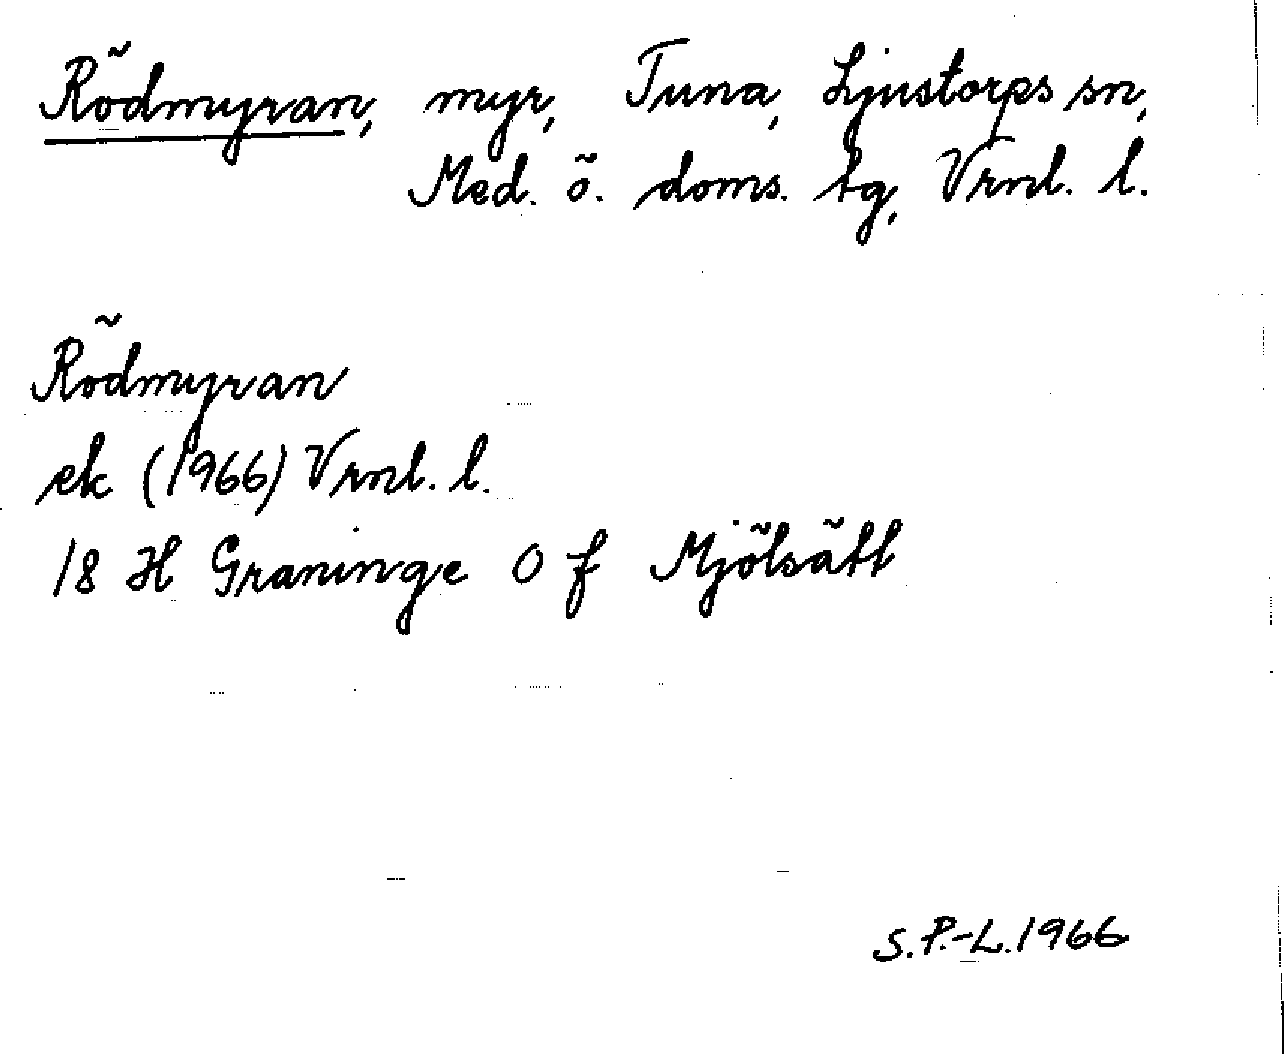 Rödmyran, myr, Tuna, Ljustorps sn,
Med. ö. doms. tg, Vrnl. l.
Rödmyran
ek (1966) Vrnl. l.
18 H Graninge O f Mjölsätt
S.P.-L. 1966